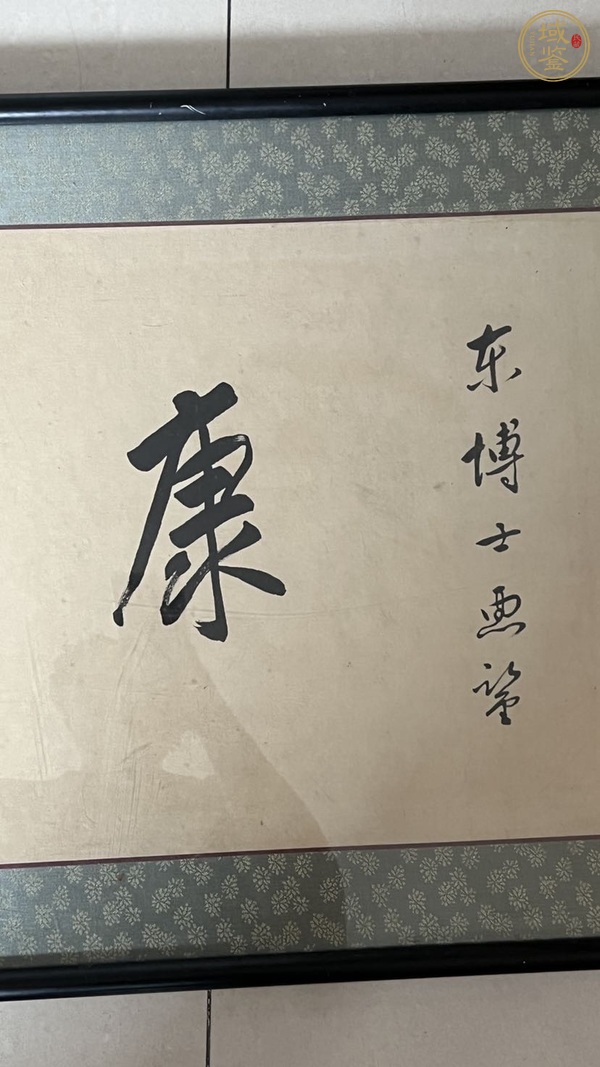 域鉴
东博士惠鉴
康